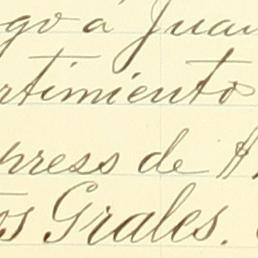 go á Juan
rtimiento
press de H
os Grales.